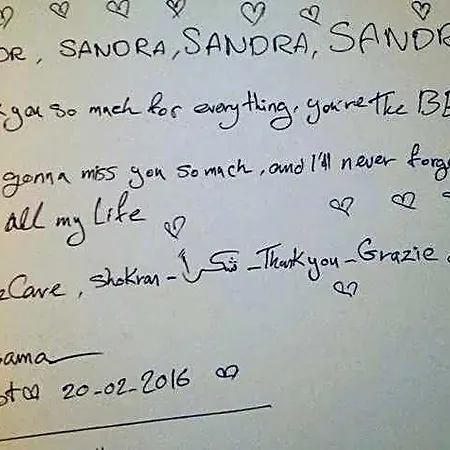 DR, SANDRA, SANDRA, SANDR
you so much for everything, you're the BE
gonna miss you so much, and I'll never forg
all my Life
Care, Shokran - شكراً - Thank you - Grazie
ama
20-02-2016